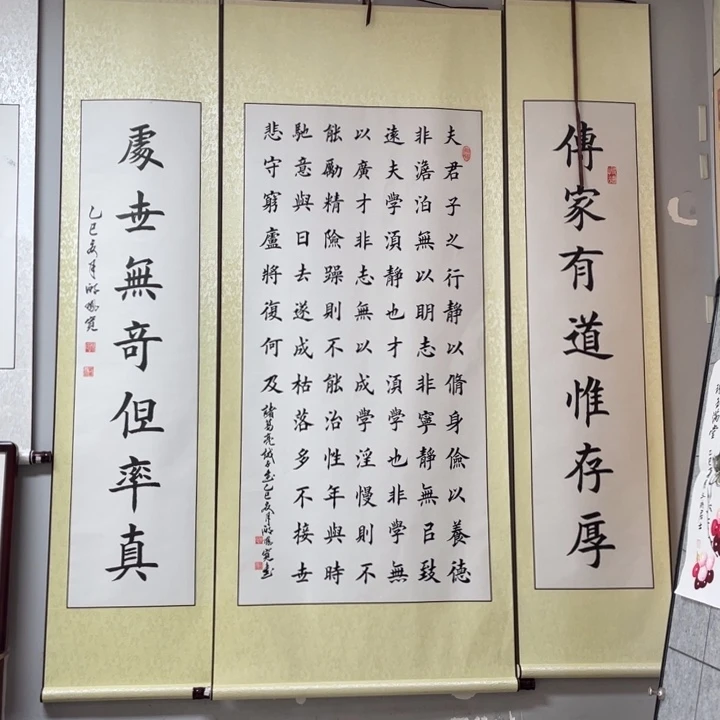 傳家有道惟存厚
夫君子之行静以脩身儉以養德
非澹泊無以明志非寧静無㠯致
遠夫學湏静也才湏學也非學無
以廣才非志無以成學淫慢則不
能勵精險躁則不能冶性年與時
馳意與日去遂成枯落多不接世
悲守窮廬將復何及
諸葛亮誡子書乙巳夏月
處世無奇但率真
乙巳夏月